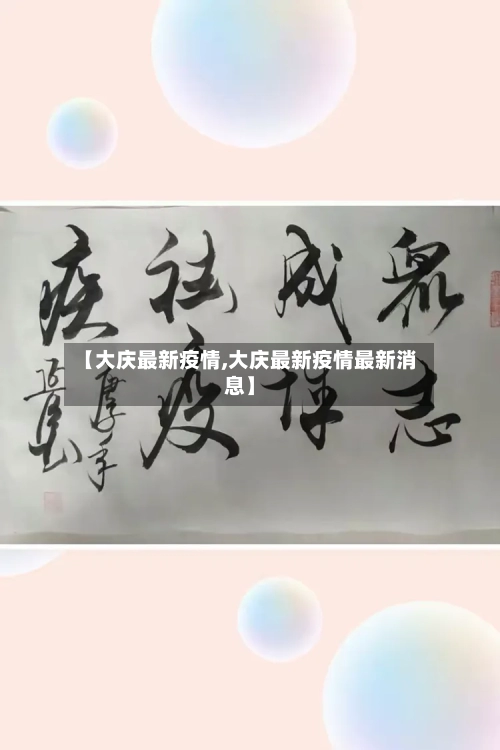 眾志
成城
祛疫
疾
【大庆最新疫情,大庆最新疫情最新消
息】